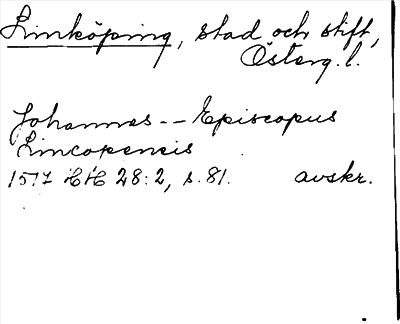 Linköping, stad och stift,
Österg.l.
Johannes -- Episcopus
Lincopensis
1517 HH 28:2, s.81. avskr.